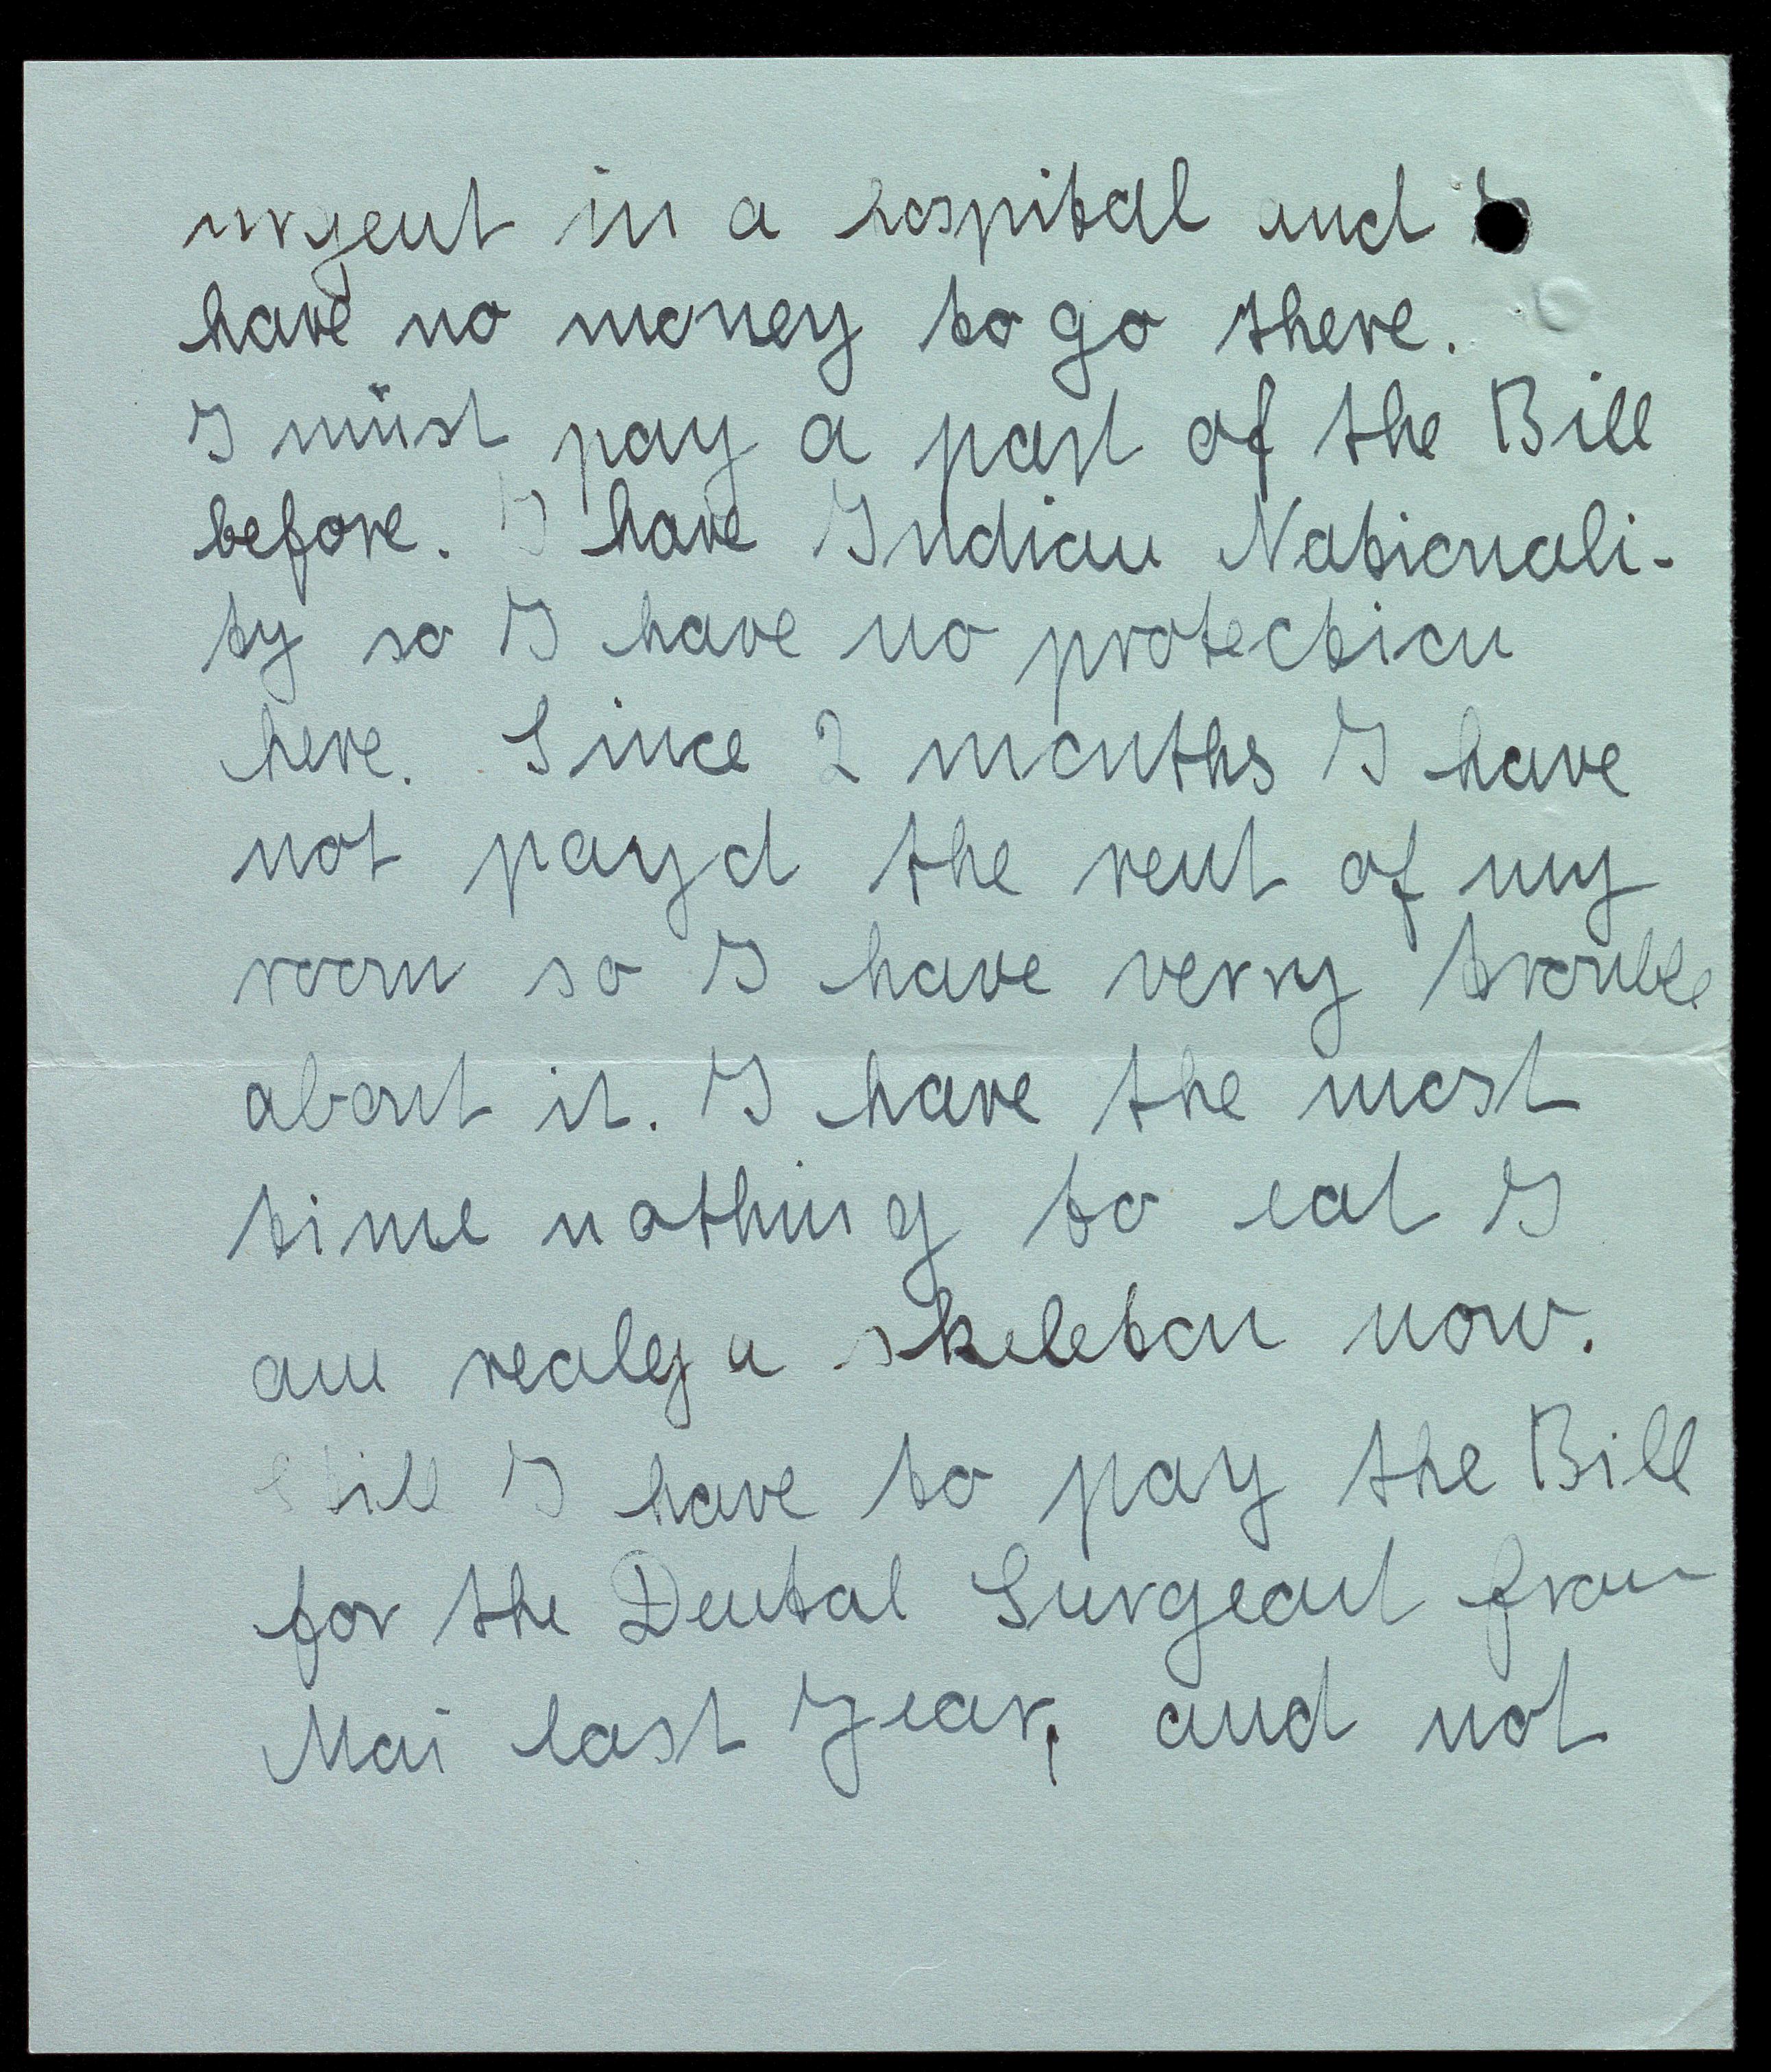 urgent in a hospital and I
have no money to go there.
I müst pay a part of the Bill
before. I have Indian Nationali-
ty so I have no protection
here. Since 2 months I have
not payd the rent of my
room so I have verry trouble
about it. I have the most
time nothing to eat I
am realy a skeleton now.
Still I have to pay the Bill
for the Dental Surgeont from
Mai last Year, and not